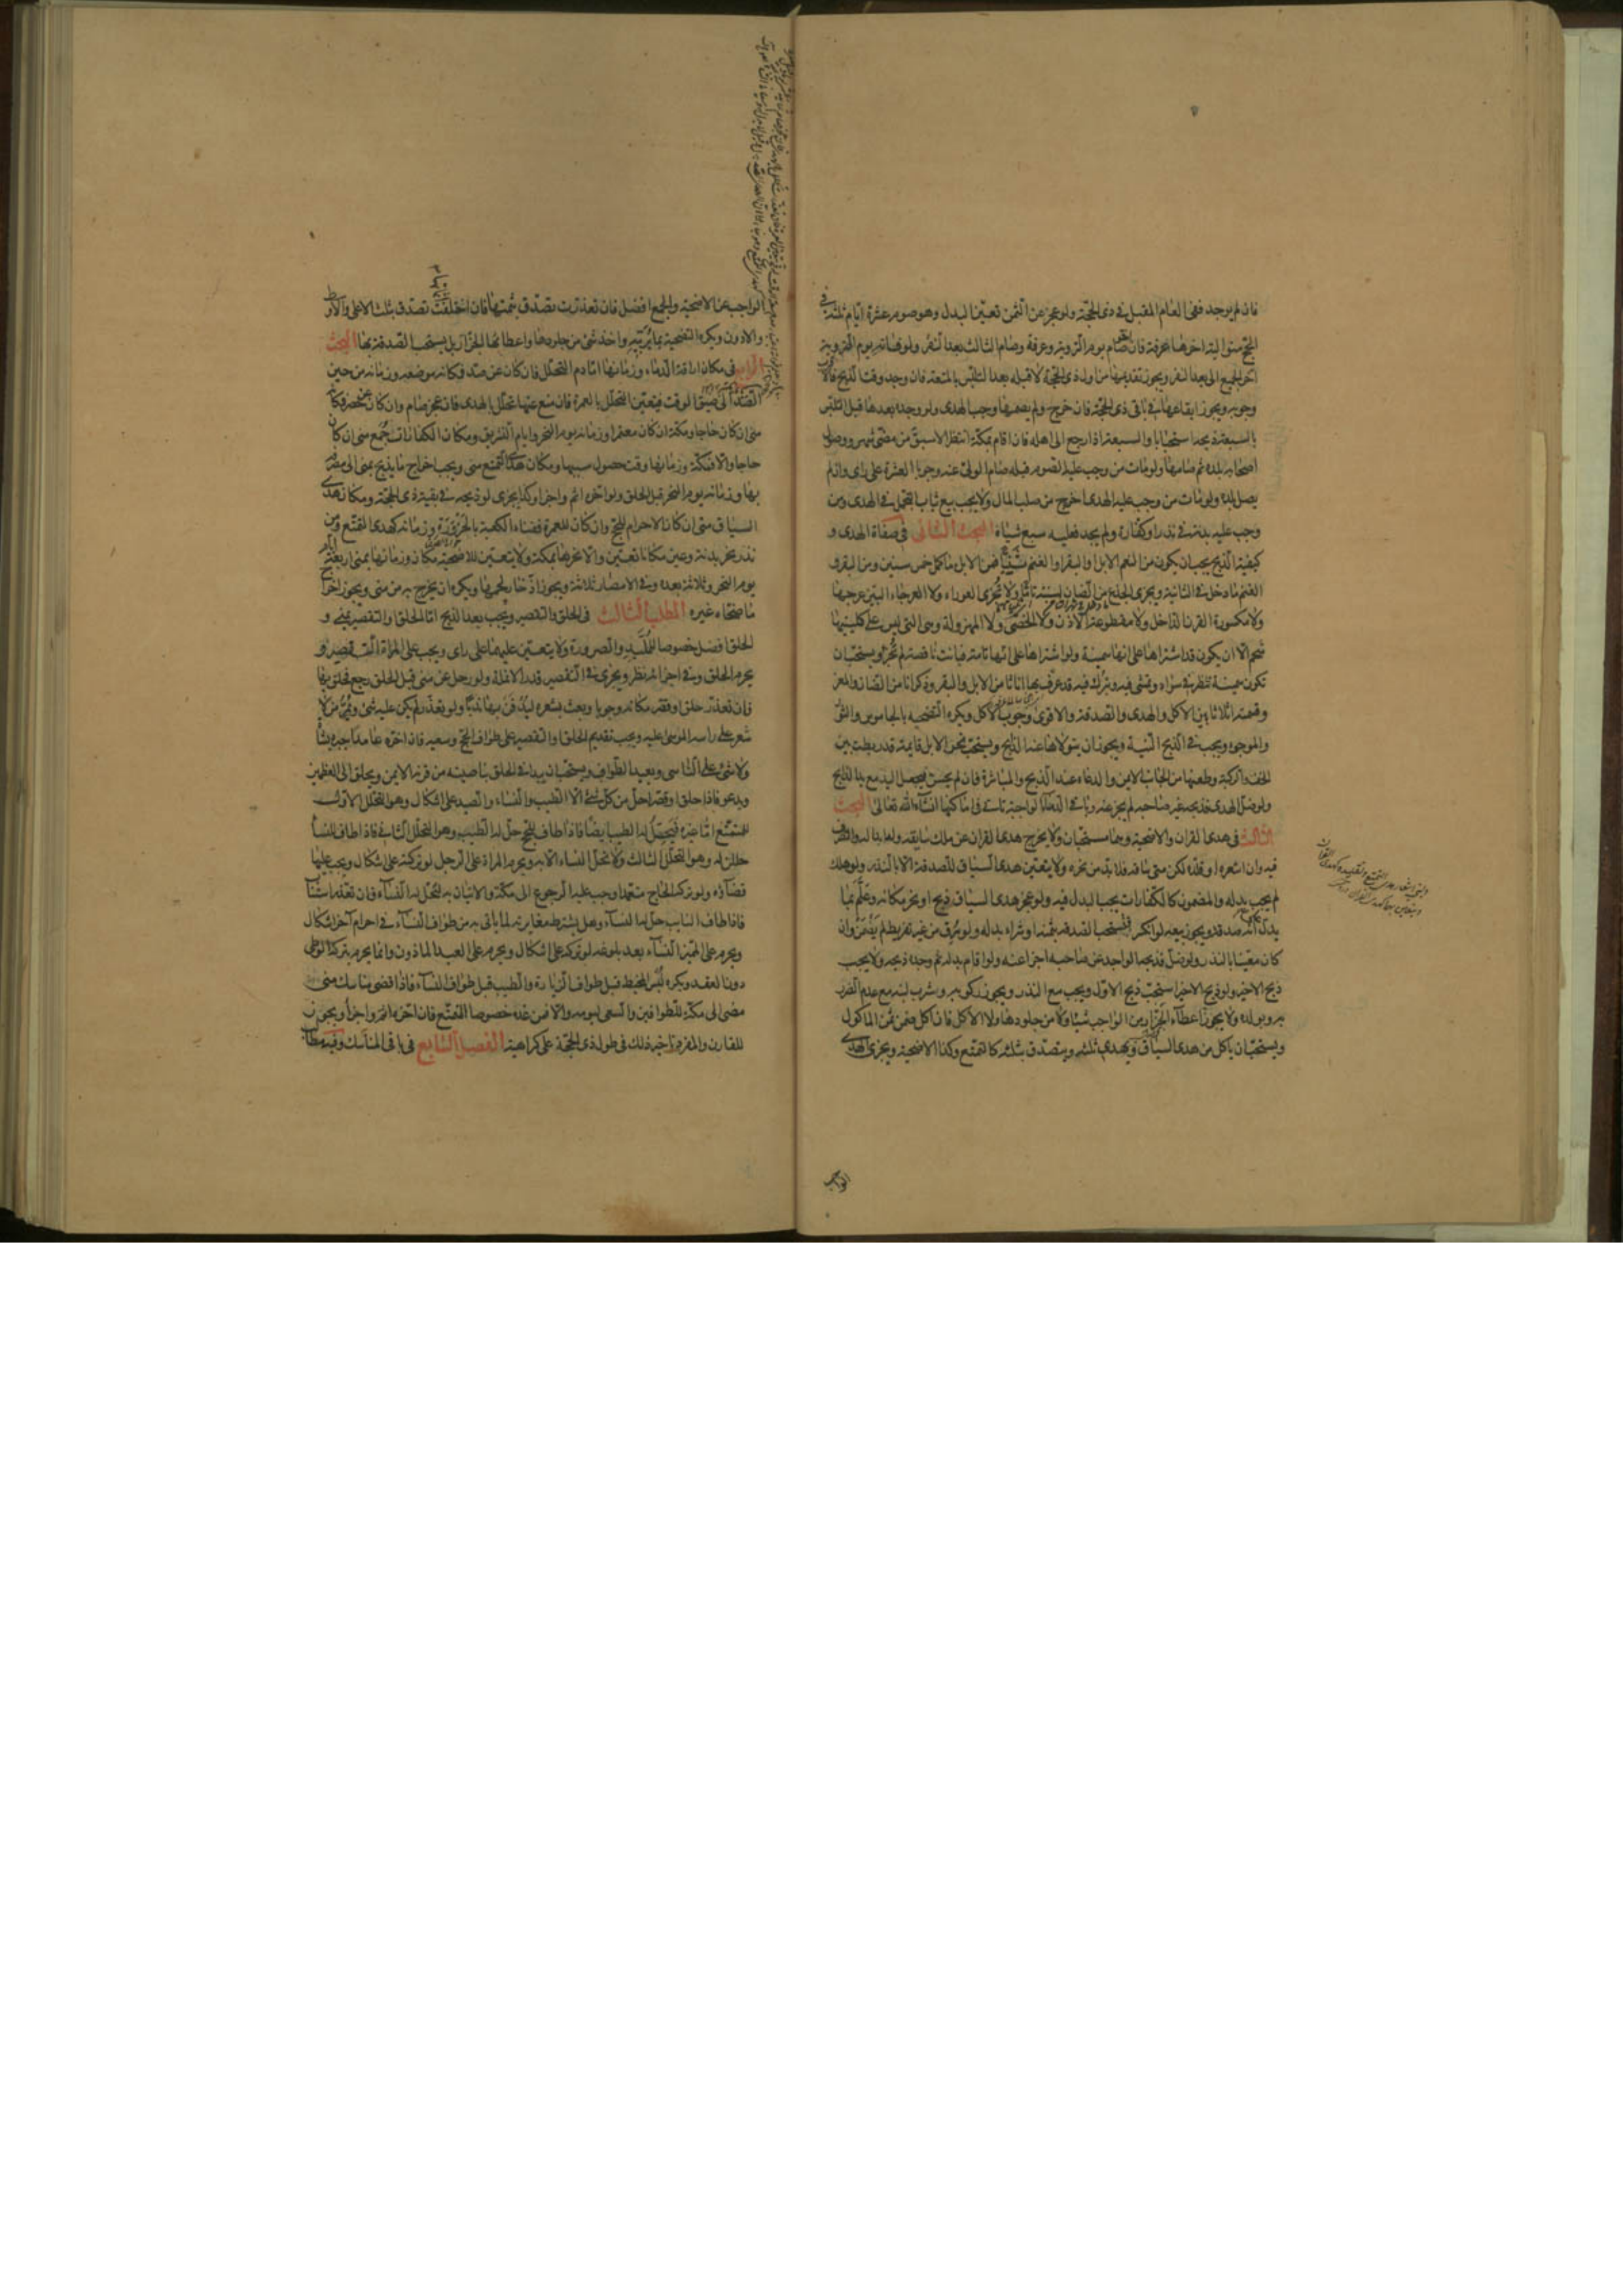 فان لم يوجد ففى العام المقبل فى ذى الحجة ولو عجز عن الثمن تعين البدل وهو صوم عشرة ايام ثلثة فى
الحج متوالية اخرها عرفة فان صام يوم التروية وعرفة وصام الثالث بعد النفر ولو فاته يوم التروية
اخر الجميع الى بعد النفر ويجوز تقديمها من اول ذى الحجة لا قبله بعد التلبس بالمتعة فان وجد وقت الذبح فالاقرب
وجوبه ويجوز ايقاعها فى باقى ذى الحجة فان خرج ولم يصمها وجب الهدى ولو وجده بعدها قبل التلبس
بالسبعة ذبح استحبابا والسبعة اذا رجع الى اهله فان اقام بمكة انتظر الاسبق من مضى شهر ووصول
اصحابه بلده ثم صامها ولو مات من وجب عليه الصوم قبله صام الولى عنه وجوبا العشرة على راى وان لم
يصل بلده ولو مات من وجب عليه الهدى اخرج من صلب المال ولا يجب بيع ثياب التجمل فى الهدى ومن
وجب عليه بدنة فى نذر او كفارة ولم يجد فعليه سبع شياه البحث الثانى فى صفات الهدى و
كيفية الذبح يجب ان يكون من النعم الابل او البقر او الغنم ثنيا فمن الابل ما كمل خمس سنين ومن البقر و
الغنم ما دخل فى الثانية ويجزى الجذع من الضان لسنة تاما ولا تجزى العوراء ولا العرجاء البين عرجها
ولا مكسورة القرن الداخل ولا مقطوعة الاذن ولا الخصى ولا المهزولة وهى التى ليس على كليتيها
شحم الا ان يكون قد اشتراها على انها سمينة ولو اشتراها على انها تامة فبانت ناقصة لم تجز ويستحب ان
تكون سمينة تنظر فى سواد وتمشى فيه وتبرك فيه قد عرف بها اناثا من الابل والبقر وذكرانا من الضان والمعز
وقسمته اثلاثا بين الاكل والهدى والصدقة والاقوى وجوب الاكل ويكره التضحية بالجاموس والثور
والموجوء ويجب فى الذبح النية ويجوز ان يتولاها عنه الذابح ويستحب نحر الابل قائمة قد ربطت بين
الخف والركبة وطعنها من الجانب الايمن والدعاء عند الذبح والمباشرة فان لم يحسن فيجعل اليد مع يد الذابح
ولو ضل الهدى فذبحه غير صاحبه لم يجز عنه وباقى الدماء الواجبة تاتى فى اماكنها انشاء الله تعالى البحث
الثالث فى هدى القران والاضحية وهما مستحبان ولا يخرج هدى القران عن ملك سايقه وله ابداله والتصرف
فيه وان اشعره او قلده لكن متى ساقه فلا بد من نحره ولا يتعين هدى السياق للصدقة الا بالنذر ولو هلك
لم يجب بدله والمضمون كالكفارات يجب البدل فيه ولو عجز هدى السياق ذبح او نحر مكانه وعلم بما
يدل انه صدقة ويجوز بيعه لو انكسر فيستحب الصدقة بثمنه او شراء بدله ولو سرق من غير تفريط لم يضمن وان
كان معينا بالنذر ولو ضل فذبحه الواجد عن صاحبه اجزا عنه ولو اقام بدله ثم وجده ذبحه ولا يجب
ذبح الاخير ولو ذبح الاخير استحب ذبح الاول ويجب مع النذر ويجوز ركوبه وشرب لبنه مع عدم الضرر
به وبولده ولا يجوز اعطاء الجزار من الواجب شيئا ولا من جلودها ولا الاكل فان اكل ضمن ثمن الماكول
ويستحب ان ياكل من هدى السياق ويهدى ثلثه ويتصدق بثلثه كالتمتع وكذا الاضحية ويجزى الهدى
الواجب
الواجب عن الاضحية والجمع افضل فان تعذرت تصدق بثمنها فان اختلفت تصدق بثلث الاعلى والاوسط
والادون ويكره التضحية بما يربيه واخذ شئ من جلودها واعطائها الجزار بل يستحب الصدقة بها البحث
الرابع فى مكان اراقة الدماء وزمانها اما دم التحلل فان كان عن صد فمكانه موضعه وزمانه من حين
الصد الى ضيق الوقت فيتعين التحلل بالعمرة فان منع عنها تحلل بالهدى فان عجز صام وان كان عن حصر فمكانه
منى ان كان حاجا ومكة ان كان معتمرا وزمانه يوم النحر وايام التشريق ومكان الكفارات جمع منى ان كان
حاجا والا فمكة وزمانها وقت حصول سببها ومكان هدى التمتع منى ويجب اخراج ما يذبح بمنى الى مصرفه
بها وزمانه يوم النحر قبل الحلق ولو اخره اثم واجزا وكذا يجزى لو ذبحه فى بقية ذى الحجة ومكان هدى
السياق منى ان كان الاحرام للحج وان كان للعمرة ففناء الكعبة بالحزورة وزمانه كهدى التمتع ومن
نذر نحر بدنة وعين مكانا تعين والا نحرها بمكة ولا يتعين للاضحية مكان وزمانها بمنى اربعة ايام
يوم النحر وثلاثة بعده وفى الامصار ثلاثة ويجوز ادخار لحمها ويكره ان يخرج به من منى ويجوز اخراج
ما ضحاه غيره المطلب الثالث فى الحلق والتقصير ويجب بعد الذبح اما الحلق او التقصير بمنى و
الحلق افضل خصوصا للملبد والصرورة ولا يتعين عليهما على راى ويجب على المراة التقصير و
يحرم الحلق وفى اجزائه نظر ويجزى فى التقصير قدر الانملة ولو رحل عن منى قبل الحلق رجع فحلق بها
فان تعذر حلق او قصر مكانه وجوبا وبعث بشعره ليدفن بها ندبا ولو تعذر لم يكن عليه شئ ويمر من لا
شعر على راسه الموسى عليه ويجب تقديم الحلق او التقصير على طواف الحج وسعيه فان اخره عامدا جبره بشاة
ولا شئ على الناسى ويعيد الطواف ويستحب ان يبدا فى الحلق بناصيته من قرنه الايمن ويحلق الى العظمين
ويدعو فاذا حلق او قصر احل من كل شئ الا الطيب والنساء والصيد على اشكال وهو التحلل الاول
للمتمتع اما غيره فيحل له الطيب ايضا فاذا طاف للحج حل له الطيب وهو التحلل الثانى فاذا طاف للنساء
حللن له وهو التحلل الثالث ولا تحل النساء الا به ويحرم المراة على الرجل لو تركته على اشكال ويجب عليها
قضاؤه ولو تركه الحاج متعمدا وجب عليه الرجوع الى مكة والاتيان به لتحل له النساء فان تعذر استناب
فاذا طاف النايب حل له النساء وهل يشترط مغايرته لما ياتى به من طواف النساء فى احرام اخر اشكال
ويحرم على المميز النساء بعد بلوغه لو تركه على اشكال ويحرم على العبد الماذون وانما يحرم بتركه الوطى
دون العقد ويكره لبس المخيط قبل طواف الزيارة والطيب قبل طواف النساء فاذا قضى مناسك منى
مضى الى مكة للطوافين والسعى ليومه والا فمن غده خصوصا المتمتع فان اخره اثم واجزا ويجوز
للقارن والمفرد تاخير ذلك فى طول ذى الحجة على كراهية الفصل السابع فى باقى المناسك وفيه مطالب